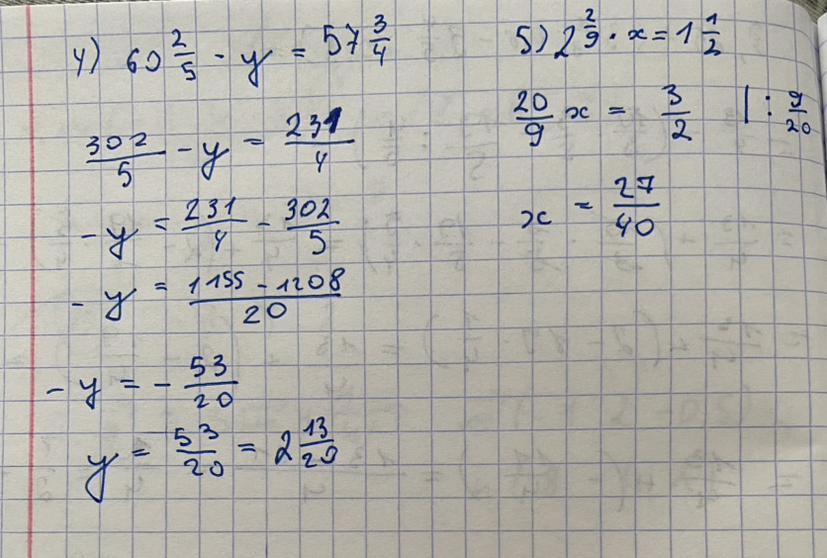 4) 60 2/5 - y = 57 3/4
302/5 - y = 231/4
-y = 231/4 - 302/5
-y = (1155 - 1208)/20
-y = - 53/20
y = 53/20 = 2 13/20
5) 2 2/9 · x = 1 1/2
20/9 x = 3/2 | : 9/20
x = 27/40